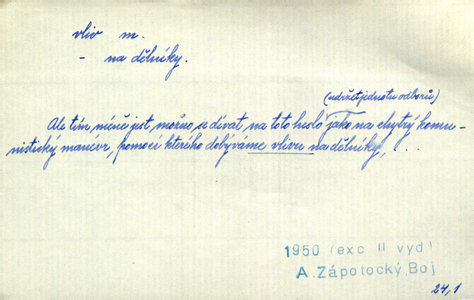 vliv m.
- na dělníky.
(udržet jednotu odborů)
Ale tím méně jest možno, se dívat na toto heslo jako na chytrý komu-
nistický manévr, pomocí kterého dobýváme vlivu na dělníky, ...
1950 (exc II vyd)
A. Zápotocký, Boj
24,1